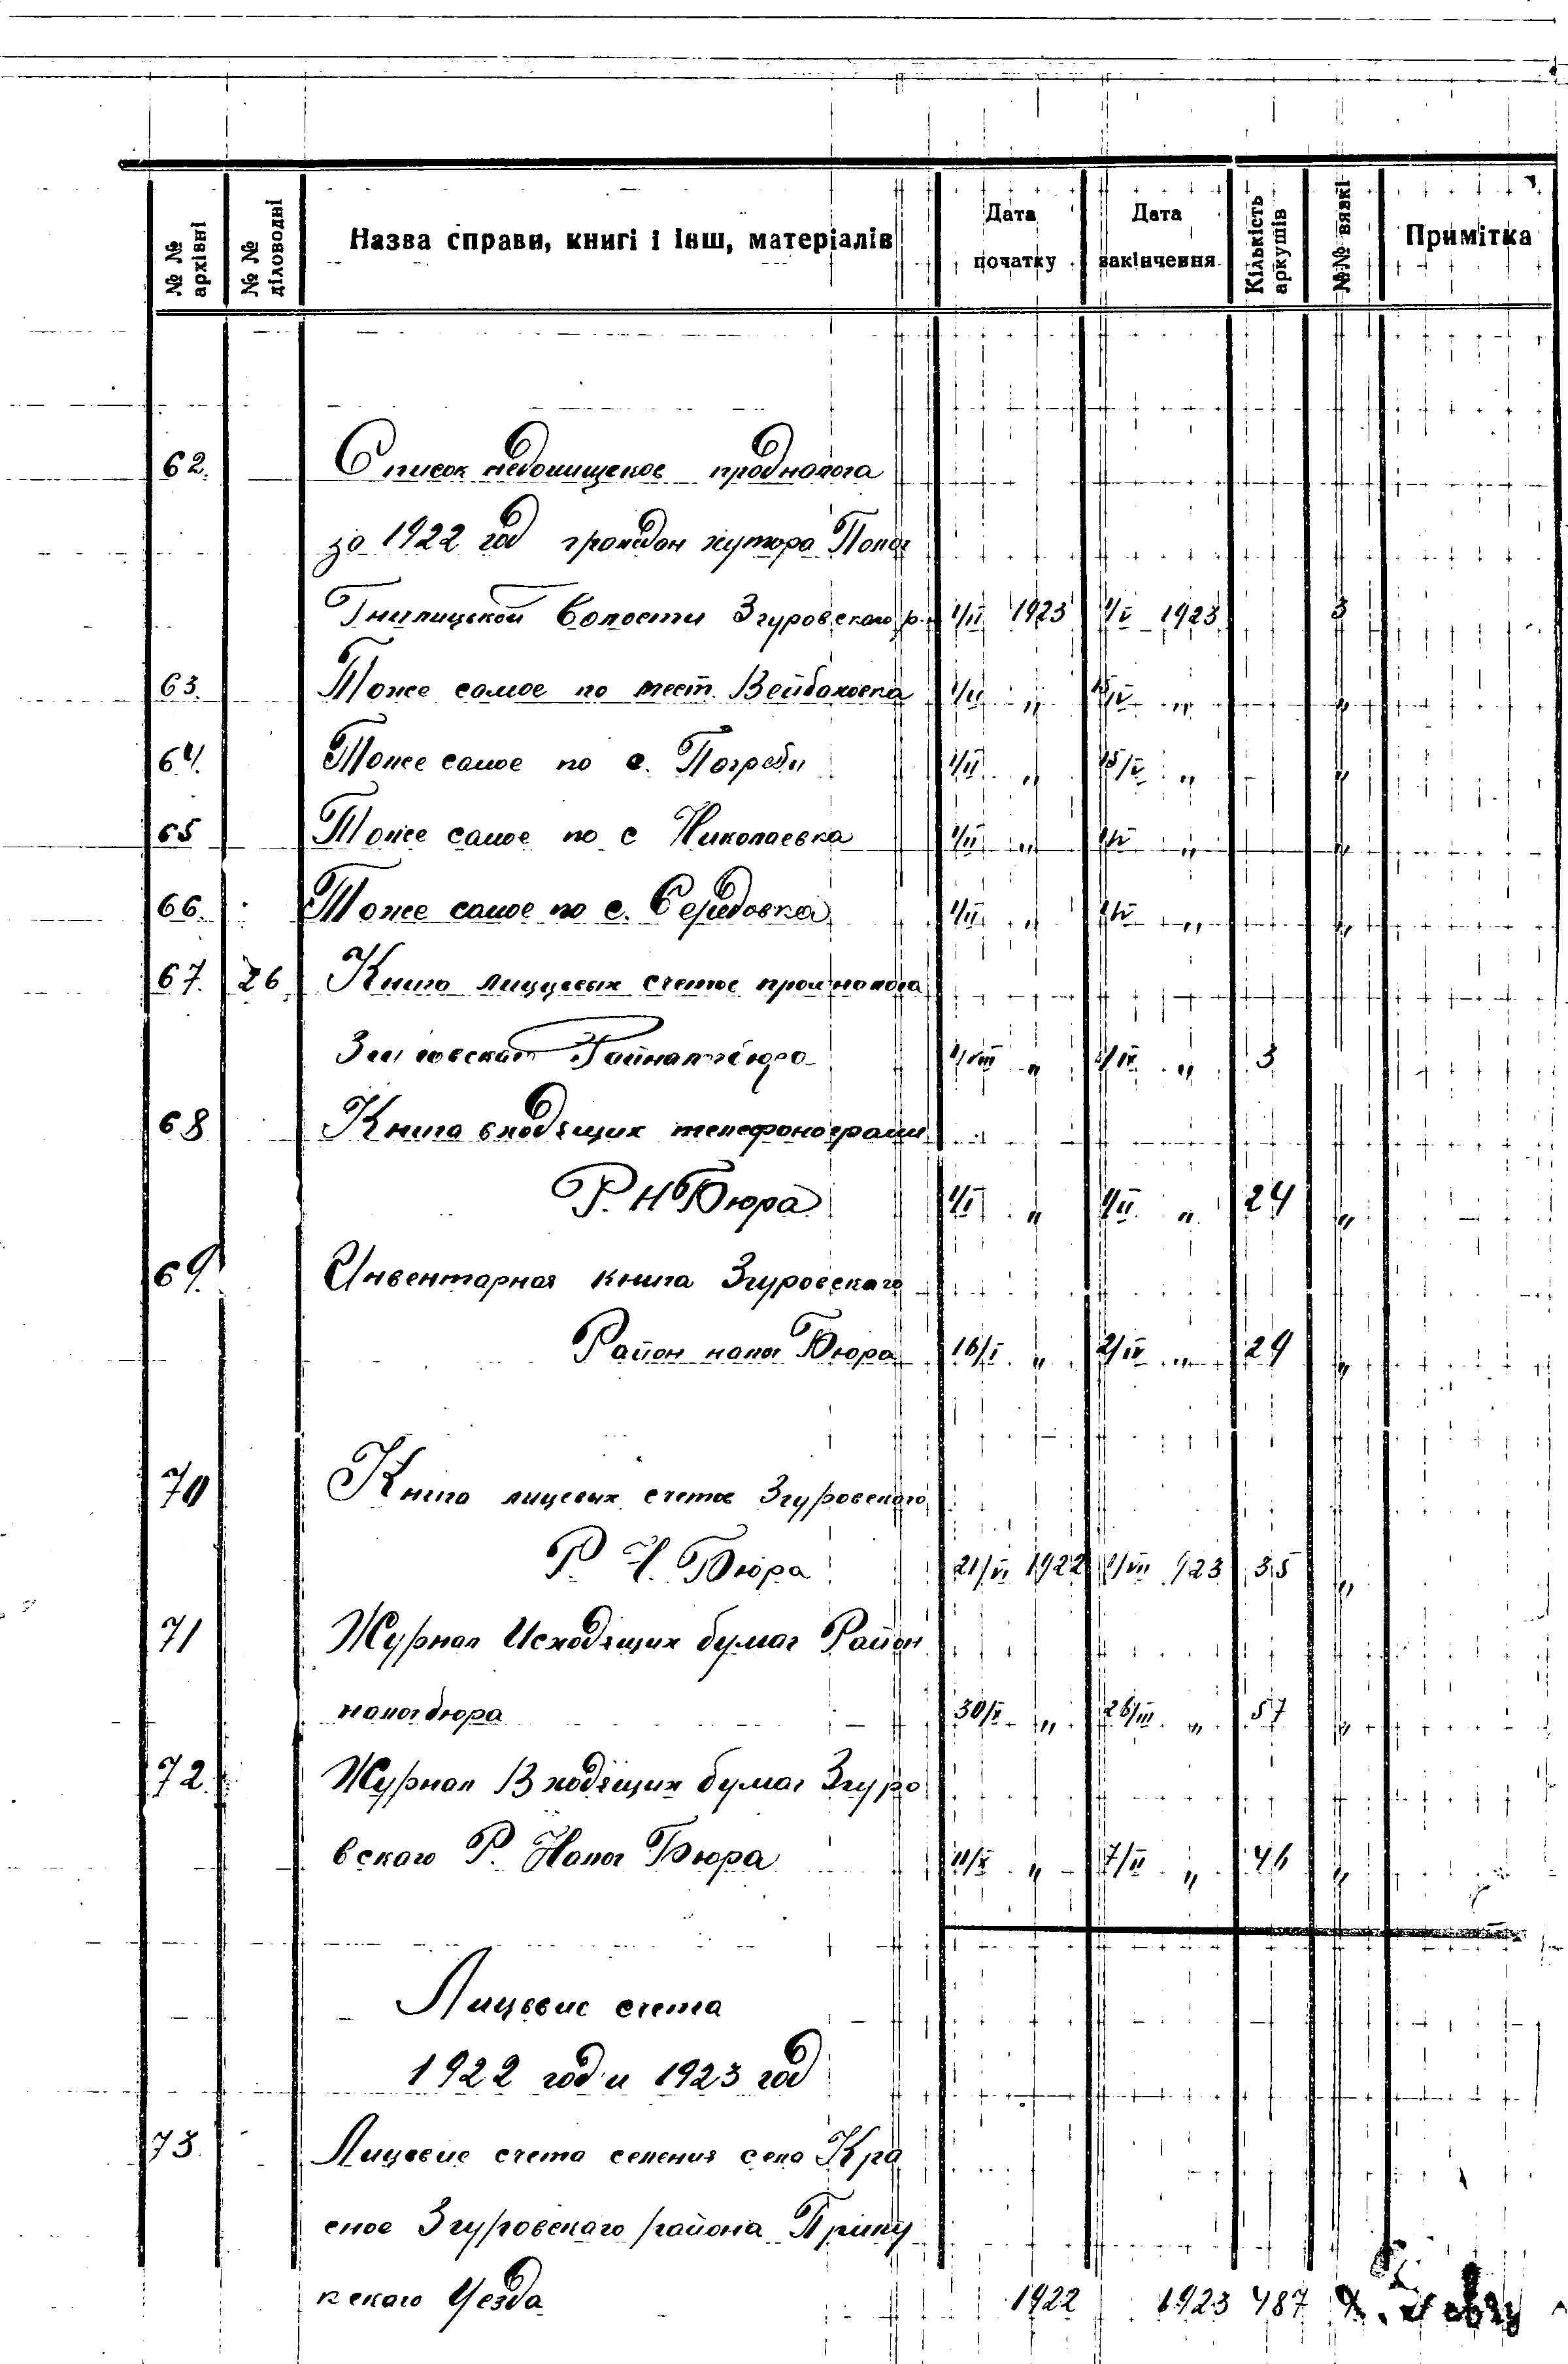 № № архівні № № діловодні Назва справи, книгі і інш, матеріалів Дата початку Дата закінчення Кількість аркушів №№ вязкі Примітка
62. Список недоимщиков продналога
за 1922 год граждан хутора Попов
Гнилицькой Волости Згуровского р. 1/II 1923 1/V 1923 3
63. Тоже самое по мест. Войтковка 1/II „ 15/V „ „
64. Тоже самое по с. Погребы 1/II „ 15/V „ „
65 Тоже самое по с Николаевка 1/II „ „ „
66. Тоже самое по с. Середовка 1/II „ „ „
67. 26. Книга лиццевых счетов промналога
Райналогбюро „ „ 3
68 Книга входящих телефонограмм
Р. Н Бюра „ „ 24 „
69. Инвентарная книга Згуровского
Район налог Бюра 16/I „ „ 29 „
70 Книга лицевых счетов Згуровского
Р. Н. Бюра 21/VI 1922 1/VII 923 35 „
71 Журнал Исходящих бумаг Район
налогбюра 30/X „ 26/III „ 57 „
72. Журнал Входящих бумаг Згуро
вского Р. Налог Бюра 11/X „ 7/II „ 46 „
Лицевие счета
1922 год и 1923 год
73. Лицевие счета селения села Кра
сное Згуровского района Прилу
кского Уезда 1922 1923 487